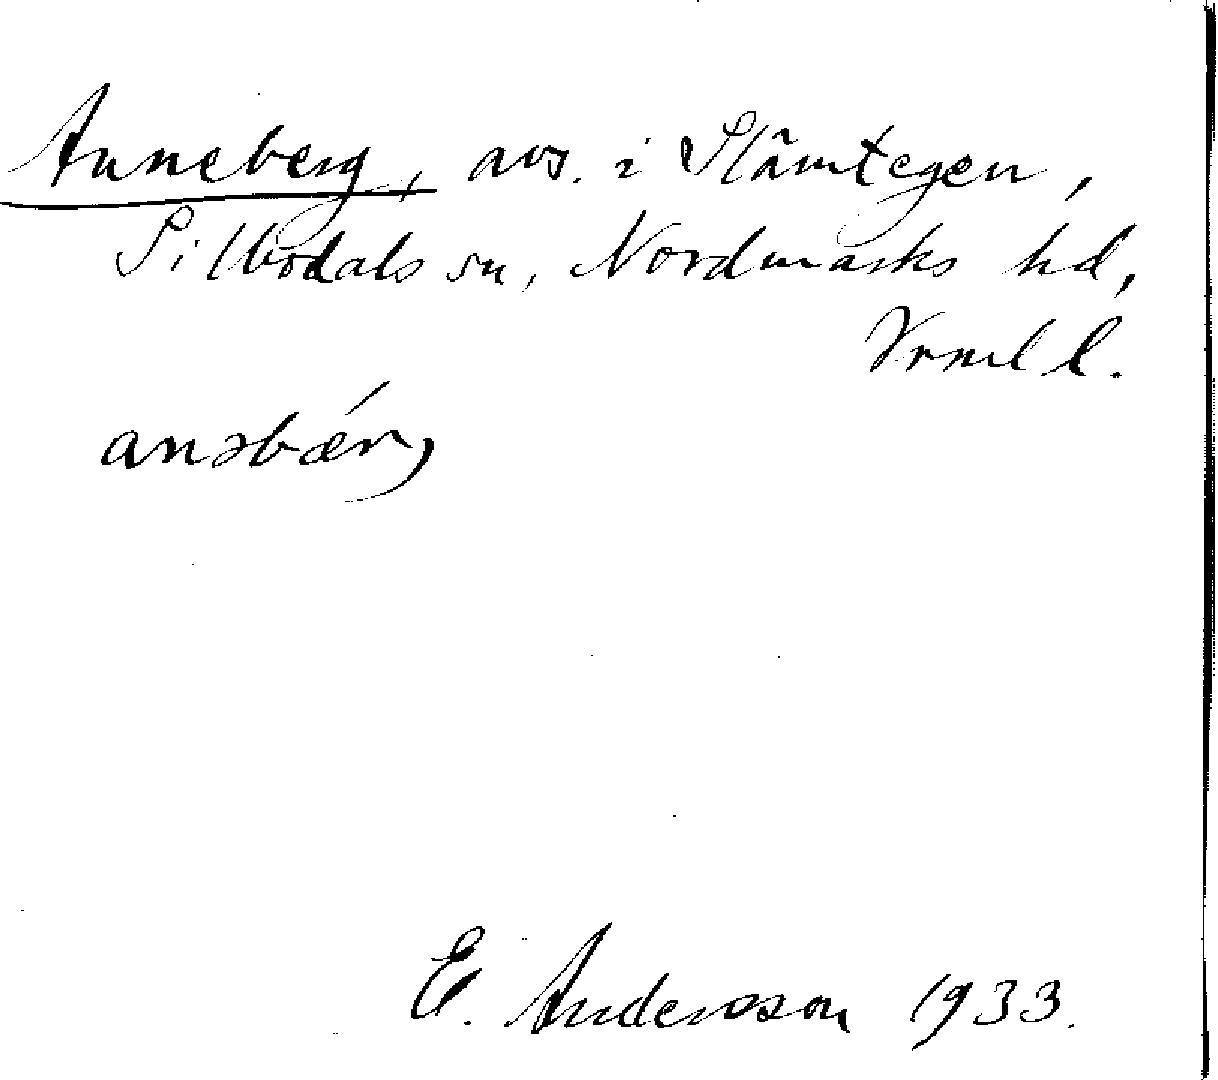 Anneberg, avs. i Slämtegen,
Sillbodals sn, Nordmarks hd,
Vrml l.
anəbǽr
E. Andersson 1933.